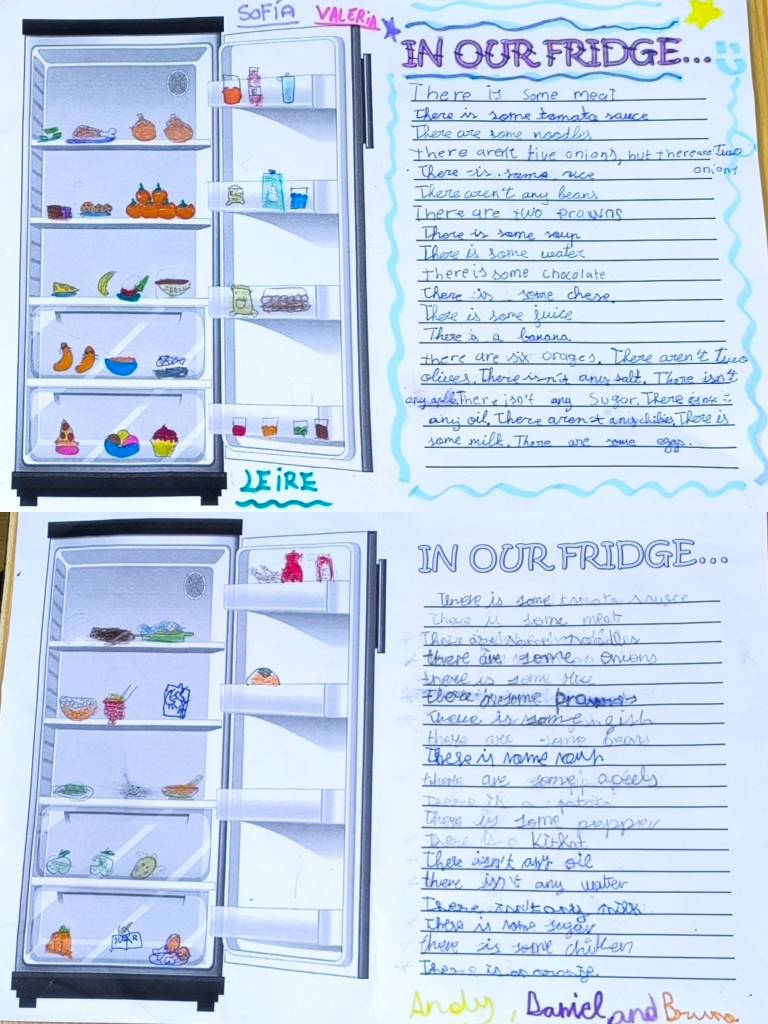 SOFÍA VALERIA
IN OUR FRIDGE...
There is some meat
There is some tomato sauce
There are some noodles
there aren't five onions, but there are Two
onions
There is some rice
There aren't any beans
There are two prawns
There is some soup
There is some water
there is some chocolate
There is some chese
There is some juice
There is a banana
there are six orages. There aren't two
olives. There isn't any salt. There isn't
There isn't any Sugar. There isn't
any oil. There aren't any chilies There is
some milk. There are some eggs.
LEIRE
IN OUR FRIDGE...
There is some tomato
There is some meat
There are some noodles
there are some onions
there is some rice
there is some prawns
There is some
there are some beans
There is some soup
there are some apels
There is a
There is some pepper
There is a Kitkat
There isn't any oil
there isn't any water
There isn't any milk
There is some sugar
there is some chiken
There is
SUGAR
Andy, Daniel and Bruno